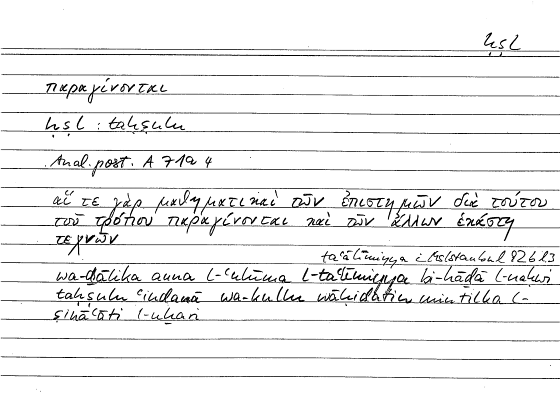 ḥṣl
παραγίνονται
ḥṣl : taḥṣulu
Anal. post. A 71a 4
αἵ τε γὰρ μαθηματικαὶ τῶν ἐπιστημῶν διὰ τούτου
τοῦ τρόπου παραγίνονται καὶ τῶν ἄλλων ἑκάστη
τεχνῶν
wa-ḏālika anna l-ʿulūma l-taʿālīmiyya bi-hāḏā l-naḥwi
taḥṣulu ʿindanā wa-kullu wāḥidatin min tilka l-
ṣināʿāti l-uḫari